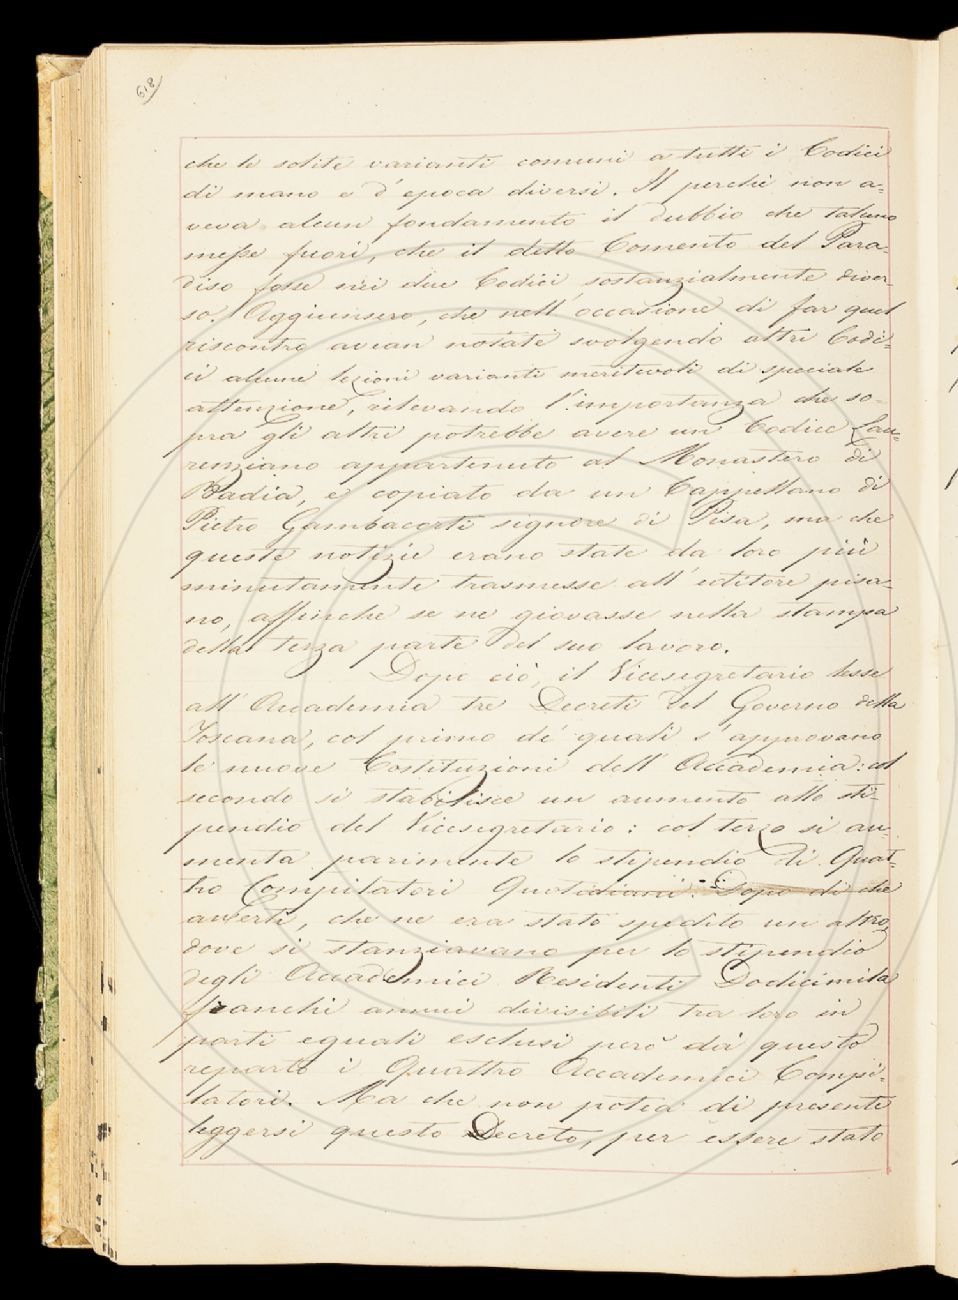 618
che le solite varianti comuni a tutti i Codici
di mano e d'epoca diversi. Il perchè non a=
veva alcun fondamento il dubbio che taluno
messe fuori, che il detto Comento del Para-
diso fosse nei due Codici, sostanzialmente diver-
so. Aggiunsero, che nell'occasione di far quel
riscontro avean notate svolgendo altri Codi=
ci alcune lezioni varianti meritevoli di speciale
attenzione, rilevando l'importanza che so-
pra gli altri potrebbe avere un Codice Lau=
renziano appartenuto al Monastero di
Badia, e copiato da un Cappellano di
Pietro Gambacorti signore di Pisa, ma che
queste notizie erano state da loro più
minutamente trasmesse all'editore pisa-
no, affinche se ne giovasse nella stampa
della terza parte del suo lavoro.
Dopo ciò, il Vicesegretario lesse
all'Accademia tre Decreti del Governo della
Toscana, col primo de' quali s'approvano
le nuove Costituzioni dell'Accademia: col
secondo si stabilisce un aumento allo sti-
pendio del Vicesegretario: col terzo si au-
menta parimente lo stipendio di Quat-
tro Compilatori Quotidiani. Dopo di che
avverti, che ne era stato spedito un altro,
dove si stanziavano per lo stipendio
degli Accademici Residenti Dodicimila
franchi annui divisibili tra loro in
parti eguali esclusi però da questo
reparto i Quattro Accademici Compi-
latori. Ma che non potea di presente
leggersi questo Decreto, per essere stato